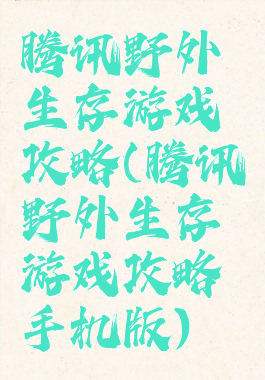 腾讯野外
生存游戏
攻略(腾讯
野外生存
游戏攻略
手机版)